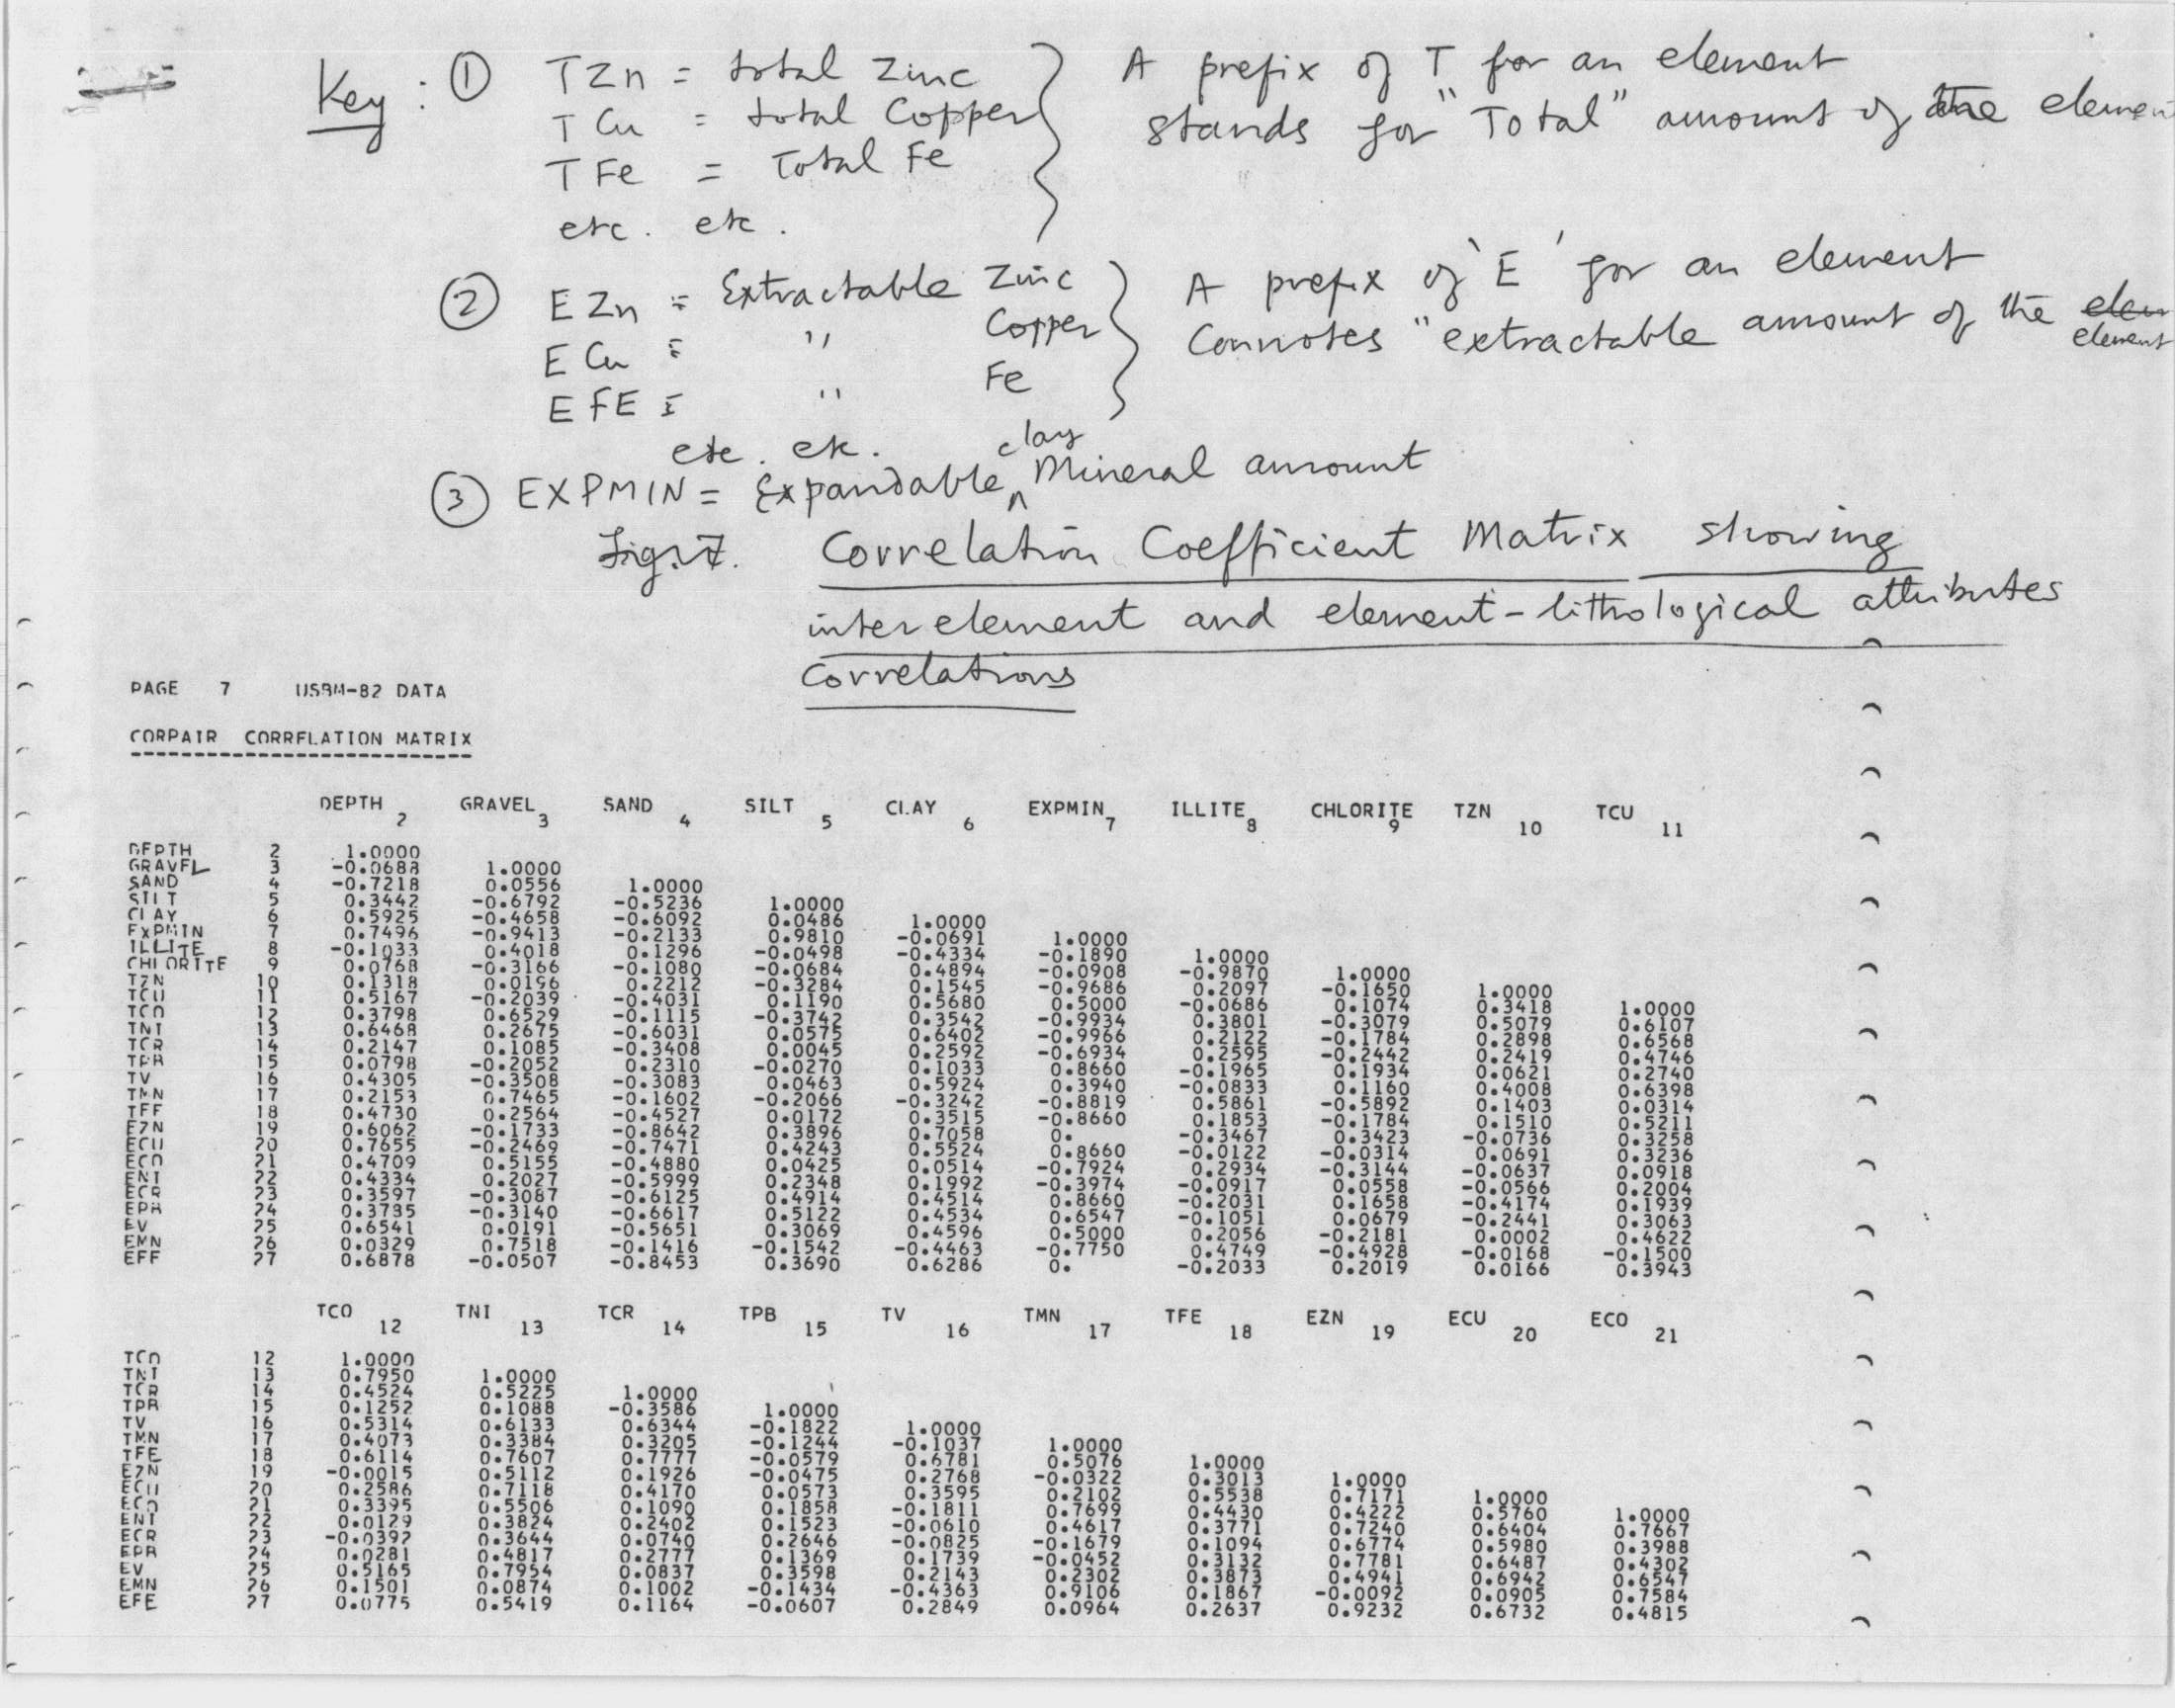 Key : ① TZn = total Zinc
TCu = total Copper
TFe = Total Fe
etc. etc.
A prefix of T for an element
stands for "Total" amount of the element
② EZn = Extractable Zinc
ECu = " Copper
EFE = " Fe
etc. etc.
A prefix of 'E' for an element
Connotes "extractable amount of the elem element
③ EXPMIN = Expandable clay Mineral amount
Fig. 7. Correlation Coefficient Matrix showing
interelement and element-lithological attributes
Correlations
PAGE 7 USBM-82 DATA
CORPAIR CORRELATION MATRIX
DEPTH 2 GRAVEL 3 SAND 4 SILT 5 CLAY 6 EXPMIN 7 ILLITE 8 CHLORITE 9 TZN 10 TCU 11
DEPTH 2 1.0000
GRAVEL 3 -0.0688 1.0000
SAND 4 -0.7218 0.0556 1.0000
SILT 5 0.3442 -0.6792 -0.5236 1.0000
CLAY 6 0.5925 -0.4658 -0.6092 0.0486 1.0000
EXPMIN 7 0.7496 -0.9413 -0.2133 0.9810 -0.0691 1.0000
ILLITE 8 -0.1033 0.4018 0.1296 -0.0498 -0.4334 -0.1890 1.0000
CHLORITE 9 0.0768 -0.3166 -0.1080 -0.0684 0.4894 -0.0908 -0.9870 1.0000
TZN 10 0.1318 0.0196 0.2212 -0.3284 0.1545 -0.9686 0.2097 -0.1650 1.0000
TCU 11 0.5167 -0.2039 -0.4031 0.1190 0.5680 0.5000 -0.0686 0.1074 0.3418 1.0000
TCO 12 0.3798 0.6529 -0.1115 -0.3742 0.3542 -0.9934 0.3801 -0.3079 0.5079 0.6107
TNI 13 0.6468 0.2675 -0.6031 0.0575 0.6402 -0.9966 0.2122 -0.1784 0.2898 0.6568
TCR 14 0.2147 0.1085 -0.3408 0.0045 0.2592 -0.6934 0.2595 -0.2442 0.2419 0.4746
TPB 15 0.0798 -0.2052 0.2310 -0.0270 0.1033 0.8660 -0.1965 0.1934 0.0621 0.2740
TV 16 0.4305 -0.3508 -0.3083 0.0463 0.5924 0.3940 -0.0833 0.1160 0.4008 0.6398
TMN 17 0.2153 0.7465 -0.1602 -0.2066 -0.3242 -0.8819 0.5861 -0.5892 0.1403 0.0314
TFE 18 0.4730 0.2564 -0.4527 0.0172 0.3515 -0.8660 0.1853 -0.1784 0.1510 0.5211
EZN 19 0.6062 -0.1733 -0.8642 0.3896 0.7058 0. -0.3467 0.3423 -0.0736 0.3258
ECU 20 0.7655 -0.2469 -0.7471 0.4243 0.5524 0.8660 -0.0122 -0.0314 0.0691 0.3236
ECO 21 0.4709 0.5155 -0.4880 0.0425 0.0514 -0.7924 0.2934 -0.3144 -0.0637 0.0918
ENI 22 0.4334 0.2027 -0.5999 0.2348 0.1992 -0.3974 -0.0917 0.0558 -0.0566 0.2004
ECR 23 0.3597 -0.3087 -0.6125 0.4914 0.4514 0.8660 -0.2031 0.1658 -0.4174 0.1939
EPB 24 0.3735 -0.3140 -0.6617 0.5122 0.4534 0.6547 -0.1051 0.0679 -0.2441 0.3063
EV 25 0.6541 0.0191 -0.5651 0.3069 0.4596 0.5000 0.2056 -0.2181 0.0002 0.4622
EMN 26 0.0329 0.7518 -0.1416 -0.1542 -0.4463 -0.7750 0.4749 -0.4928 -0.0168 -0.1500
EFF 27 0.6878 -0.0507 -0.8453 0.3690 0.6286 0. -0.2033 0.2019 0.0166 0.3943
TCO 12 TNI 13 TCR 14 TPB 15 TV 16 TMN 17 TFE 18 EZN 19 ECU 20 ECO 21
TCO 12 1.0000
TNI 13 0.7950 1.0000
TCR 14 0.4524 0.5225 1.0000
TPB 15 0.1252 0.1088 -0.3586 1.0000
TV 16 0.5314 0.6133 0.6344 -0.1822 1.0000
TMN 17 0.4073 0.3384 0.3205 -0.1244 -0.1037 1.0000
TFE 18 0.6114 0.7607 0.7777 -0.0579 0.6781 0.5076 1.0000
EZN 19 -0.0015 0.5112 0.1926 -0.0475 0.2768 -0.0322 0.3013 1.0000
ECU 20 0.2586 0.7118 0.4170 0.0573 0.3595 0.2102 0.5538 0.7171 1.0000
ECO 21 0.3395 0.5506 0.1090 0.1858 -0.1811 0.7699 0.4430 0.4222 0.5760 1.0000
ENI 22 0.0129 0.3824 0.2402 0.1523 -0.0610 0.4617 0.3771 0.7240 0.6404 0.7667
ECR 23 -0.0392 0.3644 0.0740 0.2646 -0.0825 -0.1679 0.1094 0.6774 0.5980 0.3988
EPB 24 0.0281 0.4817 0.2777 0.1369 0.1739 -0.0452 0.3132 0.7781 0.6487 0.4302
EV 25 0.5165 0.7954 0.0837 0.3598 0.2143 0.2302 0.3873 0.4941 0.6942 0.6547
EMN 26 0.1501 0.0874 0.1002 -0.1434 -0.4363 0.9106 0.1867 -0.0092 0.0905 0.7584
EFE 27 0.0775 0.5419 0.1164 -0.0607 0.2849 0.0964 0.2637 0.9232 0.6732 0.4815